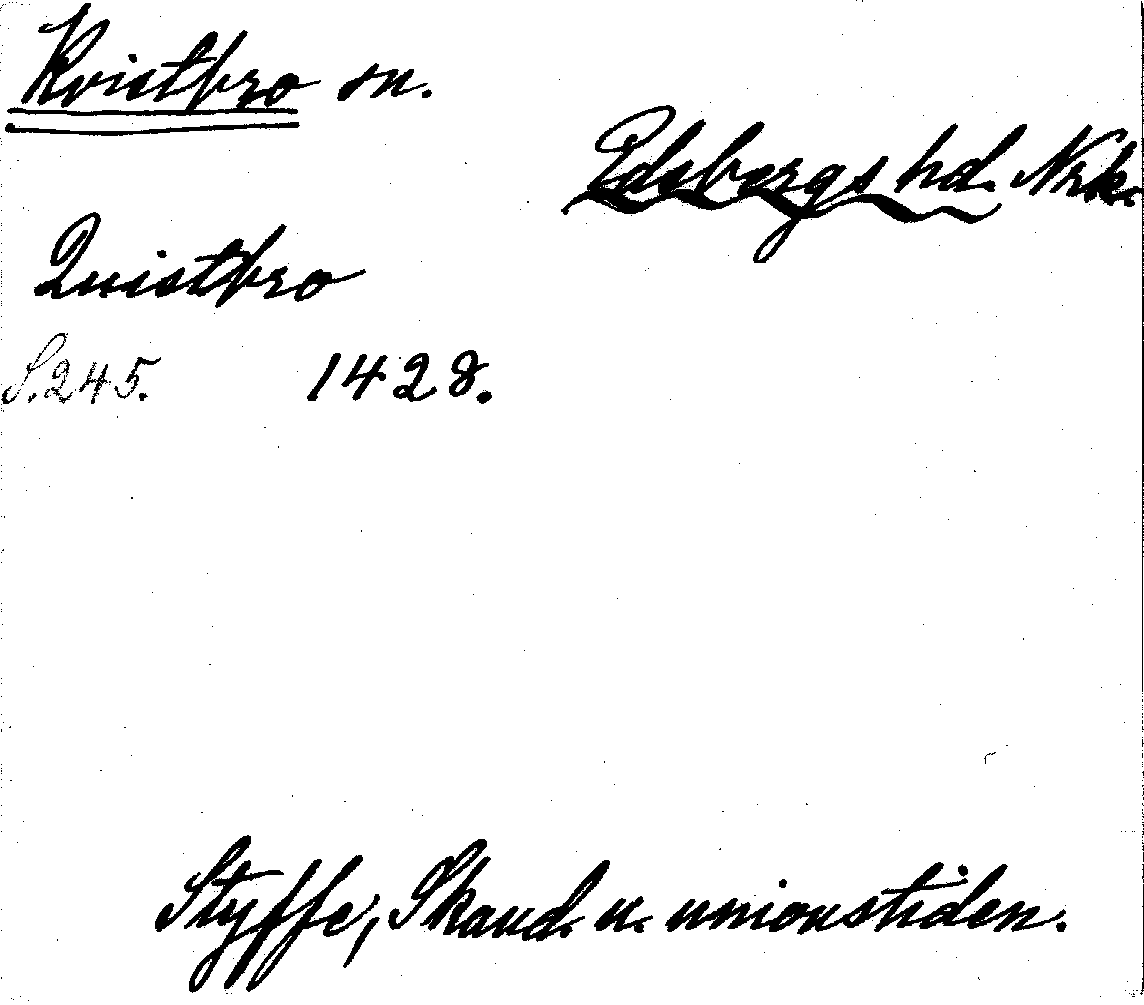 Kvistbro sn.
Edsbergs hd. Nrk.
Quistbro
S. 245. 1428.
Styffe, Skand. u. unionstiden.